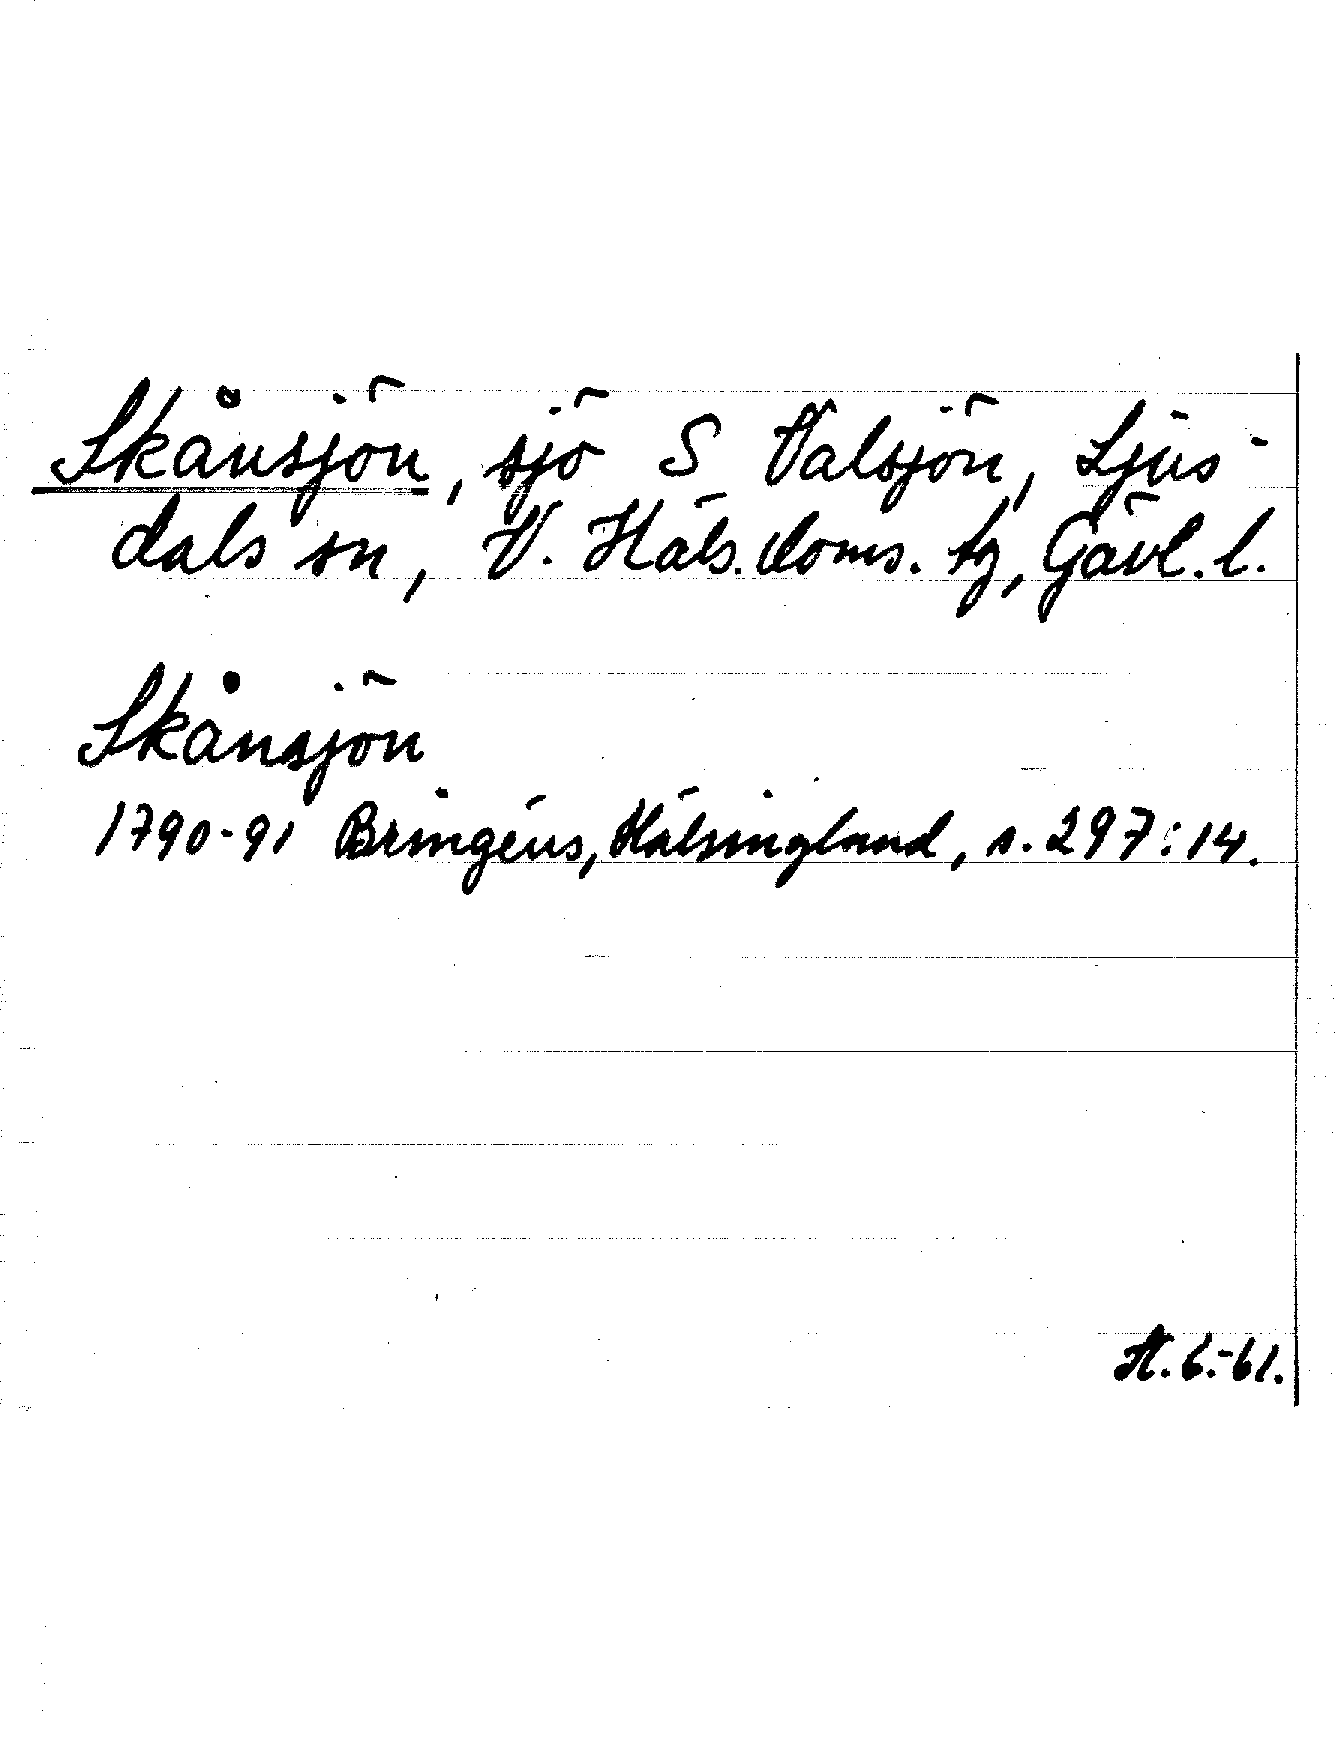 Skånsjön, sjö S Valsjön, Ljus-
dals sn, V. Häls. doms. tg, Gävl. l.
Skånsjön
1790-91 Bringéus, Hälsingland, s. 297:14.
St. 6.-61.